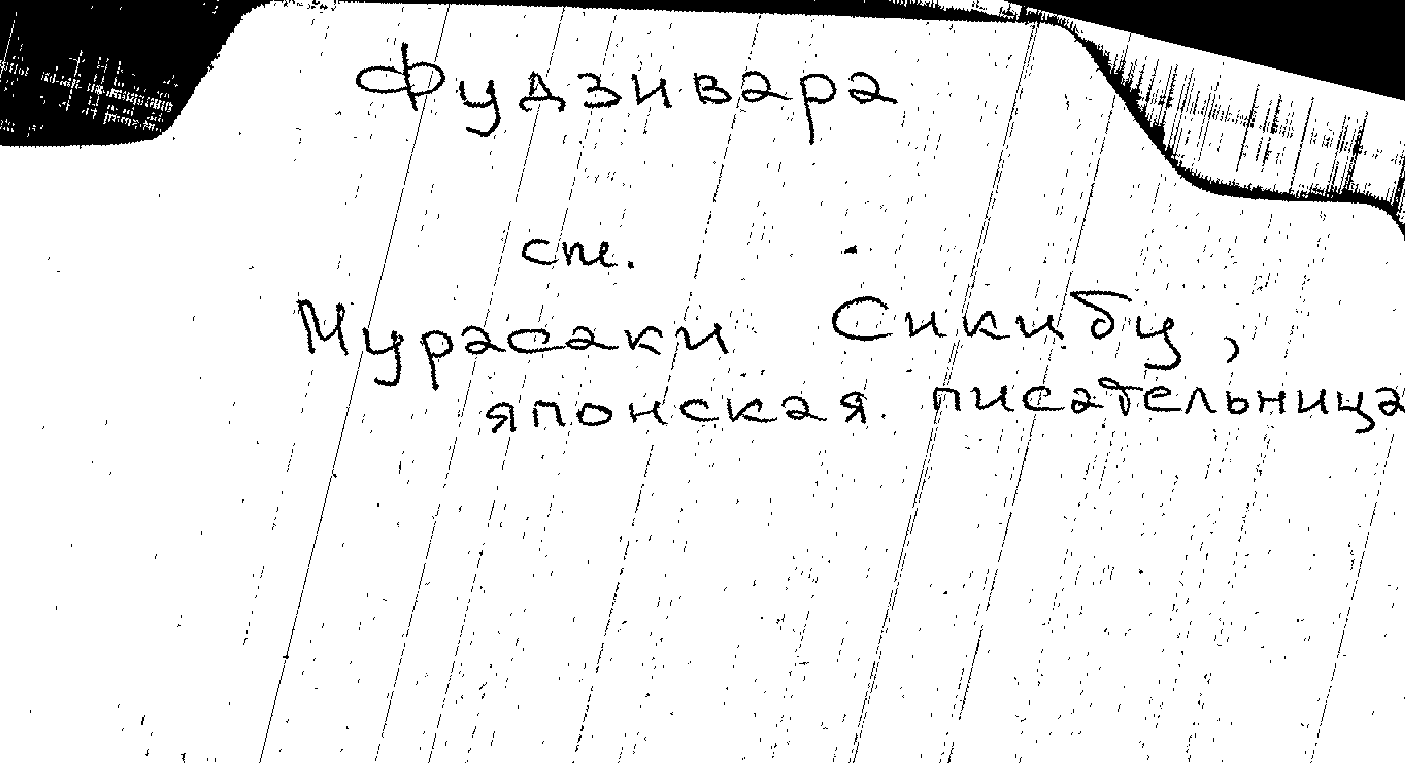 Фудзивара
см.
Мурасаки Сикибу,
японская писательница